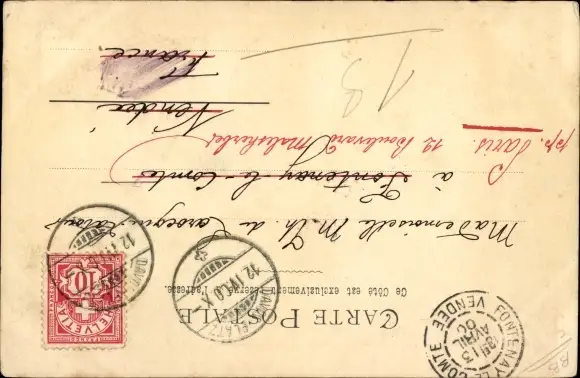 CARTE POSTALE
Ce côté est exclusivement réservé à l'adresse.
HELVETIA
10
DAVOS-PLATZ
12. IV. 0
FONTENAY-LE-COMTE
13
AVRIL
VENDEE
Mademoiselle M. Th. de
à Fontenay-le-Comte
pp. Paris. 12 Boulevard Malesherbes
Vendée
France
13